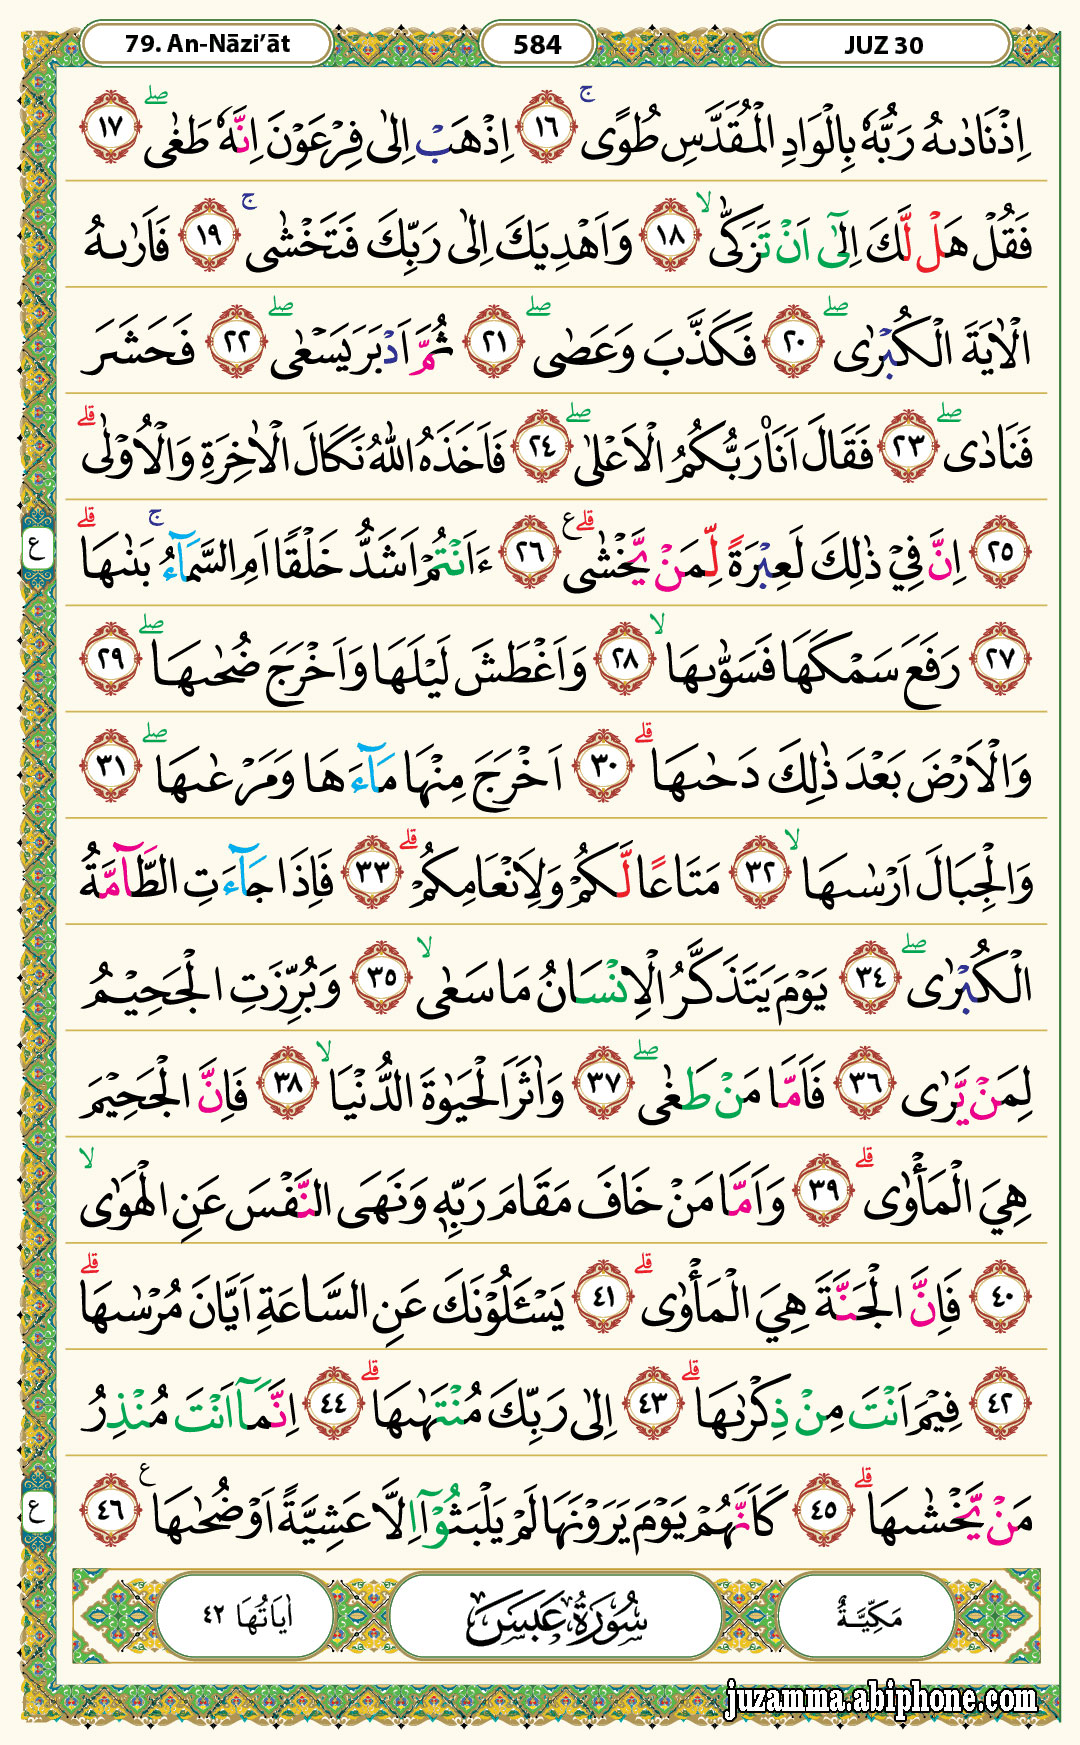 79. An-Nāzi’āt 584 JUZ 30
اِذْنَادٰىهُ رَبُّهٗ بِالْوَادِ الْمُقَدَّسِ طُوًىۚ ١٦ اِذْهَبْ اِلٰى فِرْعَوْنَ اِنَّهٗ طَغٰىۖ ١٧
فَقُلْ هَلْ لَّكَ اِلٰٓى اَنْ تَزَكّٰىۙ ١٨ وَاَهْدِيَكَ اِلٰى رَبِّكَ فَتَخْشٰىۚ ١٩ فَاَرٰىهُ
الْاٰيَةَ الْكُبْرٰىۖ ٢٠ فَكَذَّبَ وَعَصٰىۖ ٢١ ثُمَّ اَدْبَرَ يَسْعٰىۖ ٢٢ فَحَشَرَ
فَنَادٰىۖ ٢٣ فَقَالَ اَنَا۠ رَبُّكُمُ الْاَعْلٰىۖ ٢٤ فَاَخَذَهُ اللّٰهُ نَكَالَ الْاٰخِرَةِ وَالْاُوْلٰىۗ
٢٥ اِنَّ فِيْ ذٰلِكَ لَعِبْرَةً لِّمَنْ يَّخْشٰىۗ ع ٢٦ ءَاَنْتُمْ اَشَدُّ خَلْقًا اَمِ السَّمَاۤءُۚ بَنٰىهَاۗ
٢٧ رَفَعَ سَمْكَهَا فَسَوّٰىهَاۙ ٢٨ وَاَغْطَشَ لَيْلَهَا وَاَخْرَجَ ضُحٰىهَاۖ ٢٩
وَالْاَرْضَ بَعْدَ ذٰلِكَ دَحٰىهَاۗ ٣٠ اَخْرَجَ مِنْهَا مَاۤءَهَا وَمَرْعٰىهَاۖ ٣١
وَالْجِبَالَ اَرْسٰىهَاۙ ٣٢ مَتَاعًا لَّكُمْ وَلِاَنْعَامِكُمْۗ ٣٣ فَاِذَا جَاۤءَتِ الطَّاۤمَّةُ
الْكُبْرٰىۖ ٣٤ يَوْمَ يَتَذَكَّرُ الْاِنْسَانُ مَا سَعٰىۙ ٣٥ وَبُرِّزَتِ الْجَحِيْمُ
لِمَنْ يَّرٰى ٣٦ فَاَمَّا مَنْ طَغٰىۖ ٣٧ وَاٰثَرَ الْحَيٰوةَ الدُّنْيَاۙ ٣٨ فَاِنَّ الْجَحِيْمَ
هِيَ الْمَأْوٰىۗ ٣٩ وَاَمَّا مَنْ خَافَ مَقَامَ رَبِّهٖ وَنَهَى النَّفْسَ عَنِ الْهَوٰىۙ
٤٠ فَاِنَّ الْجَنَّةَ هِيَ الْمَأْوٰىۗ ٤١ يَسْـَٔلُوْنَكَ عَنِ السَّاعَةِ اَيَّانَ مُرْسٰىهَاۗ
٤٢ فِيْمَ اَنْتَ مِنْ ذِكْرٰىهَاۗ ٤٣ اِلٰى رَبِّكَ مُنْتَهٰىهَاۗ ٤٤ اِنَّمَآ اَنْتَ مُنْذِرُ
مَنْ يَّخْشٰىهَاۗ ٤٥ كَاَنَّهُمْ يَوْمَ يَرَوْنَهَا لَمْ يَلْبَثُوْٓا اِلَّا عَشِيَّةً اَوْ ضُحٰىهَا ع ٤٦
مَكِّيَّةٌ سُوْرَةُ عَبَسَ اٰيَاتُهَا ٤٢
ع
ع
juzamma.abiphone.com